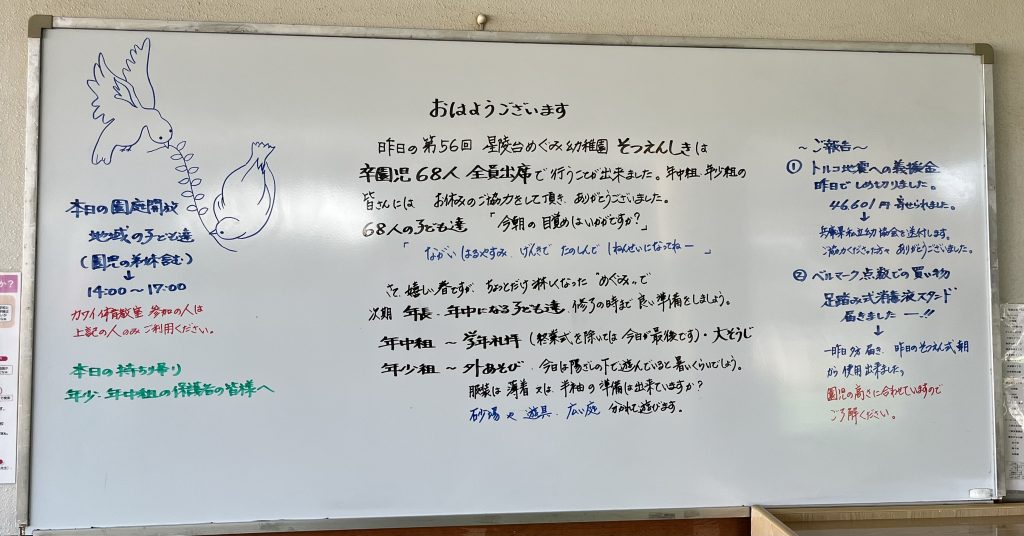 おはようございます
昨日の第56回 星陵台めぐみ幼稚園 そつえんしきは
卒園児68人 全員出席で行うことが出来ました。年中組、年少組の
皆さんには お休みのご協力をして頂き、ありがとうございました。
68人の子ども達 「今朝の目覚めはいかがですか?」
「ながいはるやすみ、げんきで たのしんで 1ねんせいになってねー」
さて、嬉しい春ですが、ちょっとだけ淋しくなった "めぐみ"で
次期 年長、年中になる子ども達、修了の時まで良い準備をしましょう。
年中組 ~ 学年礼拝 (終業式を除いては今日が最後です)・大そうじ
年少組 ~ 外あそび 今日は陽ざしの下で遊んでいると暑いくらいでしょう。
服装は薄着又は、半袖の準備は出来ていますか?
砂場や遊具、広い庭 分かれて遊びます。
本日の園庭開放
地域の子ども達
(園児の弟妹含む)
↓
14:00~17:00
カワイ体育教室 参加の人は
上記の人のみご利用ください。
本日の持ち帰り
年少、年中組の保護者の皆様へ
~ご報告~
① トルコ地震への義援金
昨日でしめきりました。
46,601円 寄せられました。
↓
兵庫県私立幼協会を送付します。
ご協力くださった方々 ありがとうございました。
② ベルマーク点数での買い物
足踏み式消毒液スタンド
届きましたー!!
↓
一昨日夕届き、昨日のそつえん式朝
から使用出来ました
園児の高さに合わせていますので
ご了解ください。